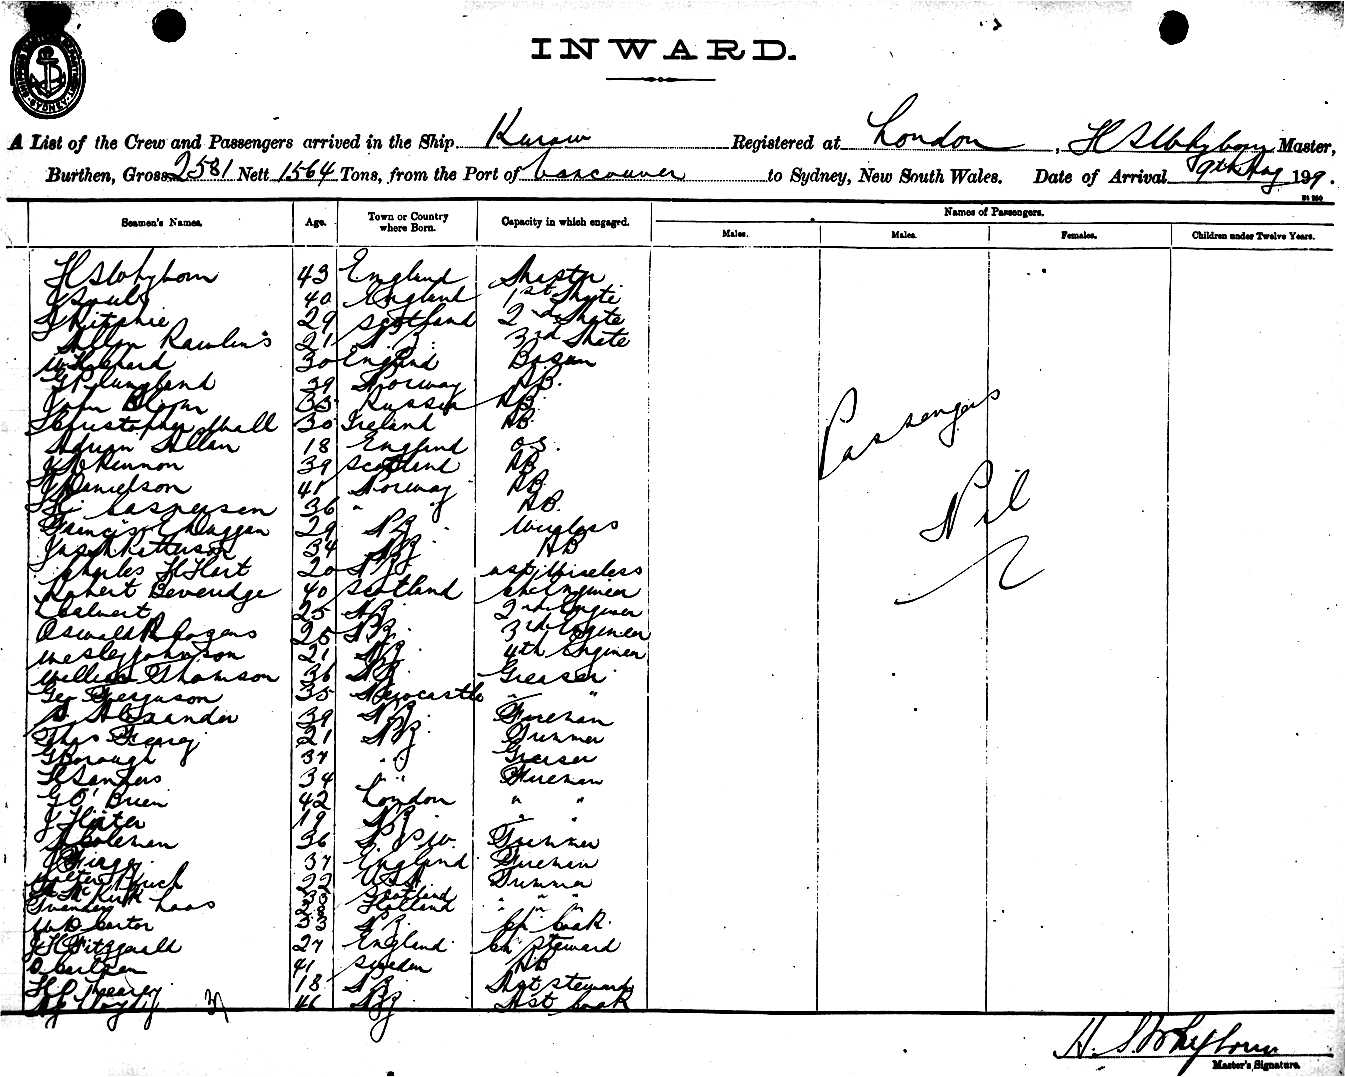 INWARD.
A List of the Crew and Passengers arrived in the Ship Kurow Registered at London, H S Whyborn Master,
Burthen, Gross 2581 Nett 1564 Tons, from the Port of Vancouver to Sydney, New South Wales. Date of Arrival 9th Aug 199.
Seamen's Names. Age. Town or Country where Born. Capacity in which engaged. Names of Passengers.
Males. Males. Females. Children under Twelve Years.
H S Whyborn 43 England Master
40 England 1st Mate
J Ritchie 29 Scotland 2nd Mate
Allan Rawlins 21 N.Z. 3rd Mate
30 England Bosun
39 Norway AB.
John Bloom 35 Russia AB.
Christopher Hall 30 Ireland AB.
Adrian Allan 18 England OS.
McKinnon 39 Scotland AB
J Danielson 41 Norway AB.
Caspersen 36 " " AB.
Francis E Duggan 29 NZ Wireless
34 NZ AB
Charles H Hart 20 NZ asst Wireless
Robert Beveridge 40 Scotland Ch Engineer
Calvert 25 NZ 2nd Engineer
Oswald R Cogens 25 NZ 3rd Engineer
Wesley Johnson 21 NZ 4th Engineer
William Thomson 36 NZ Greaser
Geo Ferguson 35 Newcastle " "
Alexander 39 NZ. Fireman
Thos Feary 21 NZ Trimmer
G Borough 37 " " Greaser
H Sanders 34 " " Fireman
G O'Brien 42 London " "
J 19 NZ " "
Coleman 36 N.S.W. Trimmer
37 England Fireman
Walter 22 USA Trimmer
McKirk Scotland " "
Haas Holland " "
W D Carter NZ. Ch Cook.
J H Fitzgerald 27 England Ch Steward
O Carlsen 41 Sweden AB
18 NZ Asst Steward
41 NZ Asst Cook
37
Passengers
Nil
H. S. Whyborn
Master's Signature.